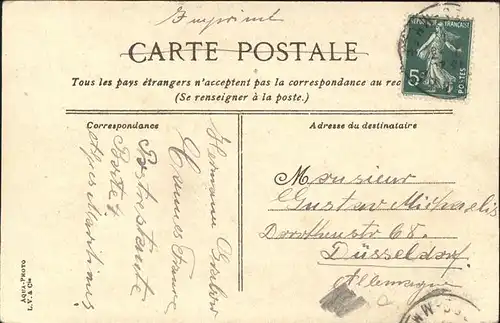 Imprimé
CARTE POSTALE
Tous les pays étrangers n'acceptent pas la correspondance au rec
(Se renseigner à la poste.)
RÉPUBLIQUE FRANÇAISE
5c
POSTES
Correspondance
Adresse du destinataire
Hermann
Cannes France
Postrestante
Alpes Maritimes
Monsieur
Gustav Michaelis
Dorotheenstr 68.
Düsseldorf.
Allemagne
AQUA-PHOTO
L.V. & Cie